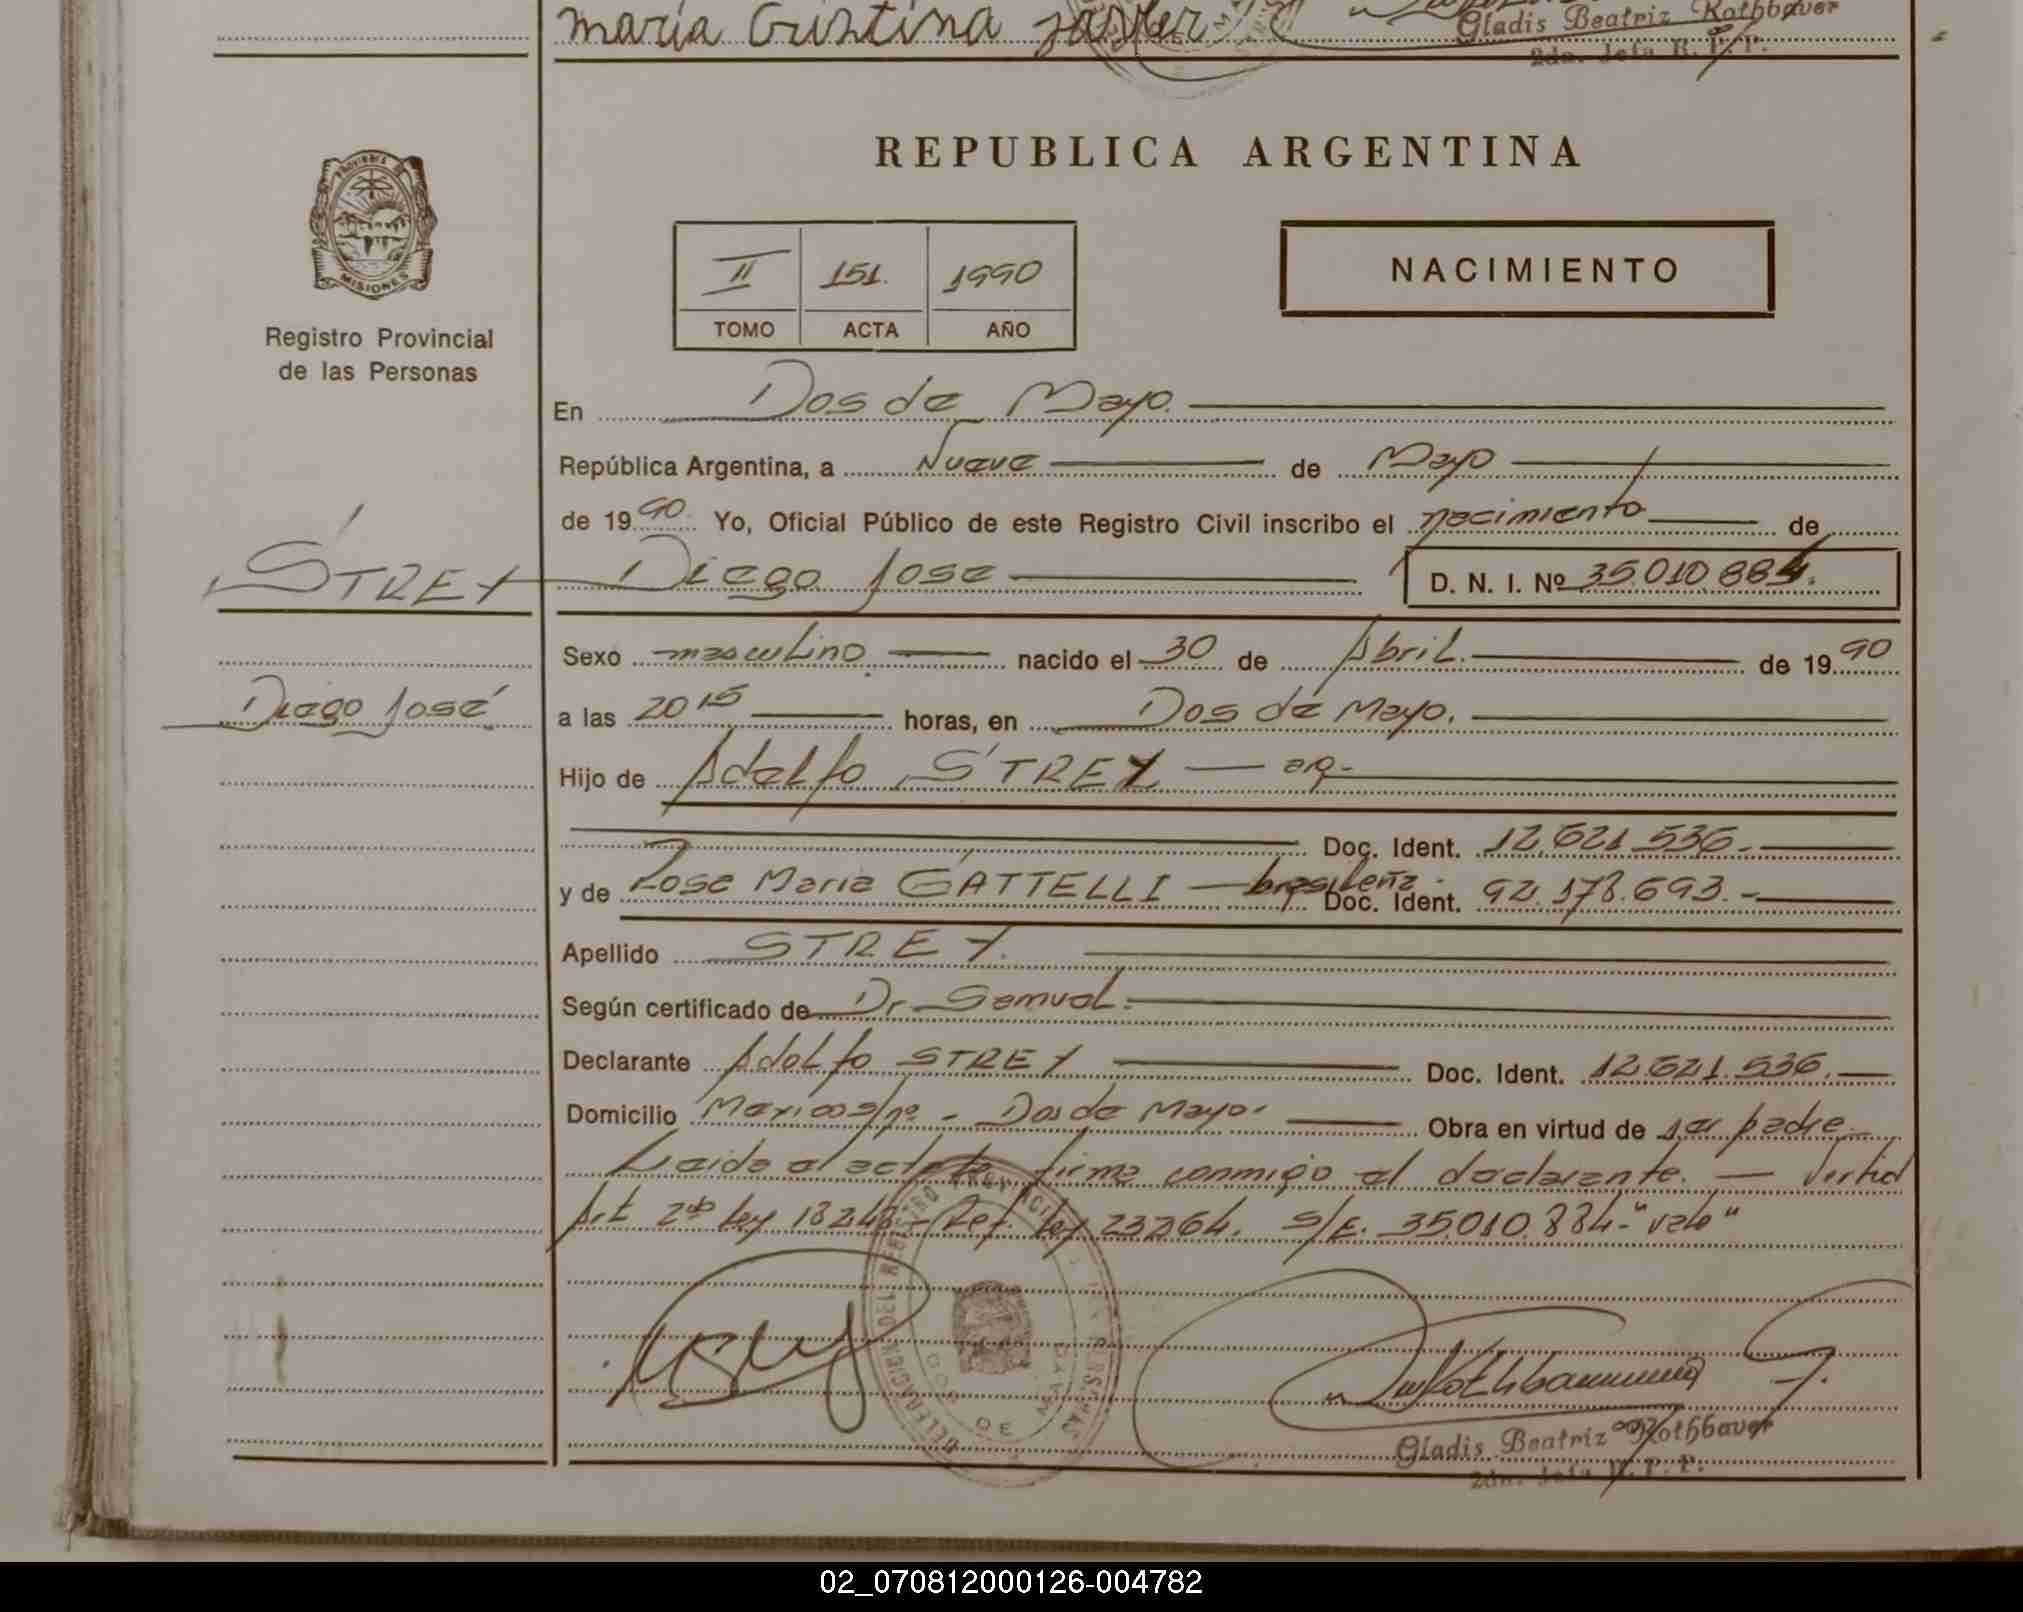 María Cristina
Gladis Beatriz Rothbaver
2da. Jefa R. P. P.
PROVINCIA
MISIONES
Registro Provincial
de las Personas
REPUBLICA ARGENTINA
II 151. 1990
TOMO ACTA AÑO
NACIMIENTO
En Dos de Mayo.
República Argentina, a Nueve de Mayo
de 1990. Yo, Oficial Público de este Registro Civil inscribo el nacimiento de
STREY Diego Jose D. N. I. Nº 35.010.884.
Sexo masculino nacido el 30 de Abril. de 1990
Diego José a las 20 15 horas, en Dos de Mayo.
Hijo de Adolfo STREY — arg.
Doc. Ident. 12.621.536.-
y de Rose Maria GATTELLI — brasileña. Doc. Ident. 92.178.693.-
Apellido STREY.
Según certificado de Dr. Samuel.
Declarante Adolfo STREY Doc. Ident. 12.621.536.-
Domicilio Mexico s/nº - Dos de Mayo.- Obra en virtud de ser padre.
Leida el acta la firma conmigo el declarante. —
Art 2do ley 18248 - Ref. ley 23264. S/E. 35.010.884-"vale"
DELEGACION DEL REGISTRO
DOS DE MAYO
Gladis Beatriz Rothbaver
2da. Jefa R. P. P.
02_070812000126-004782